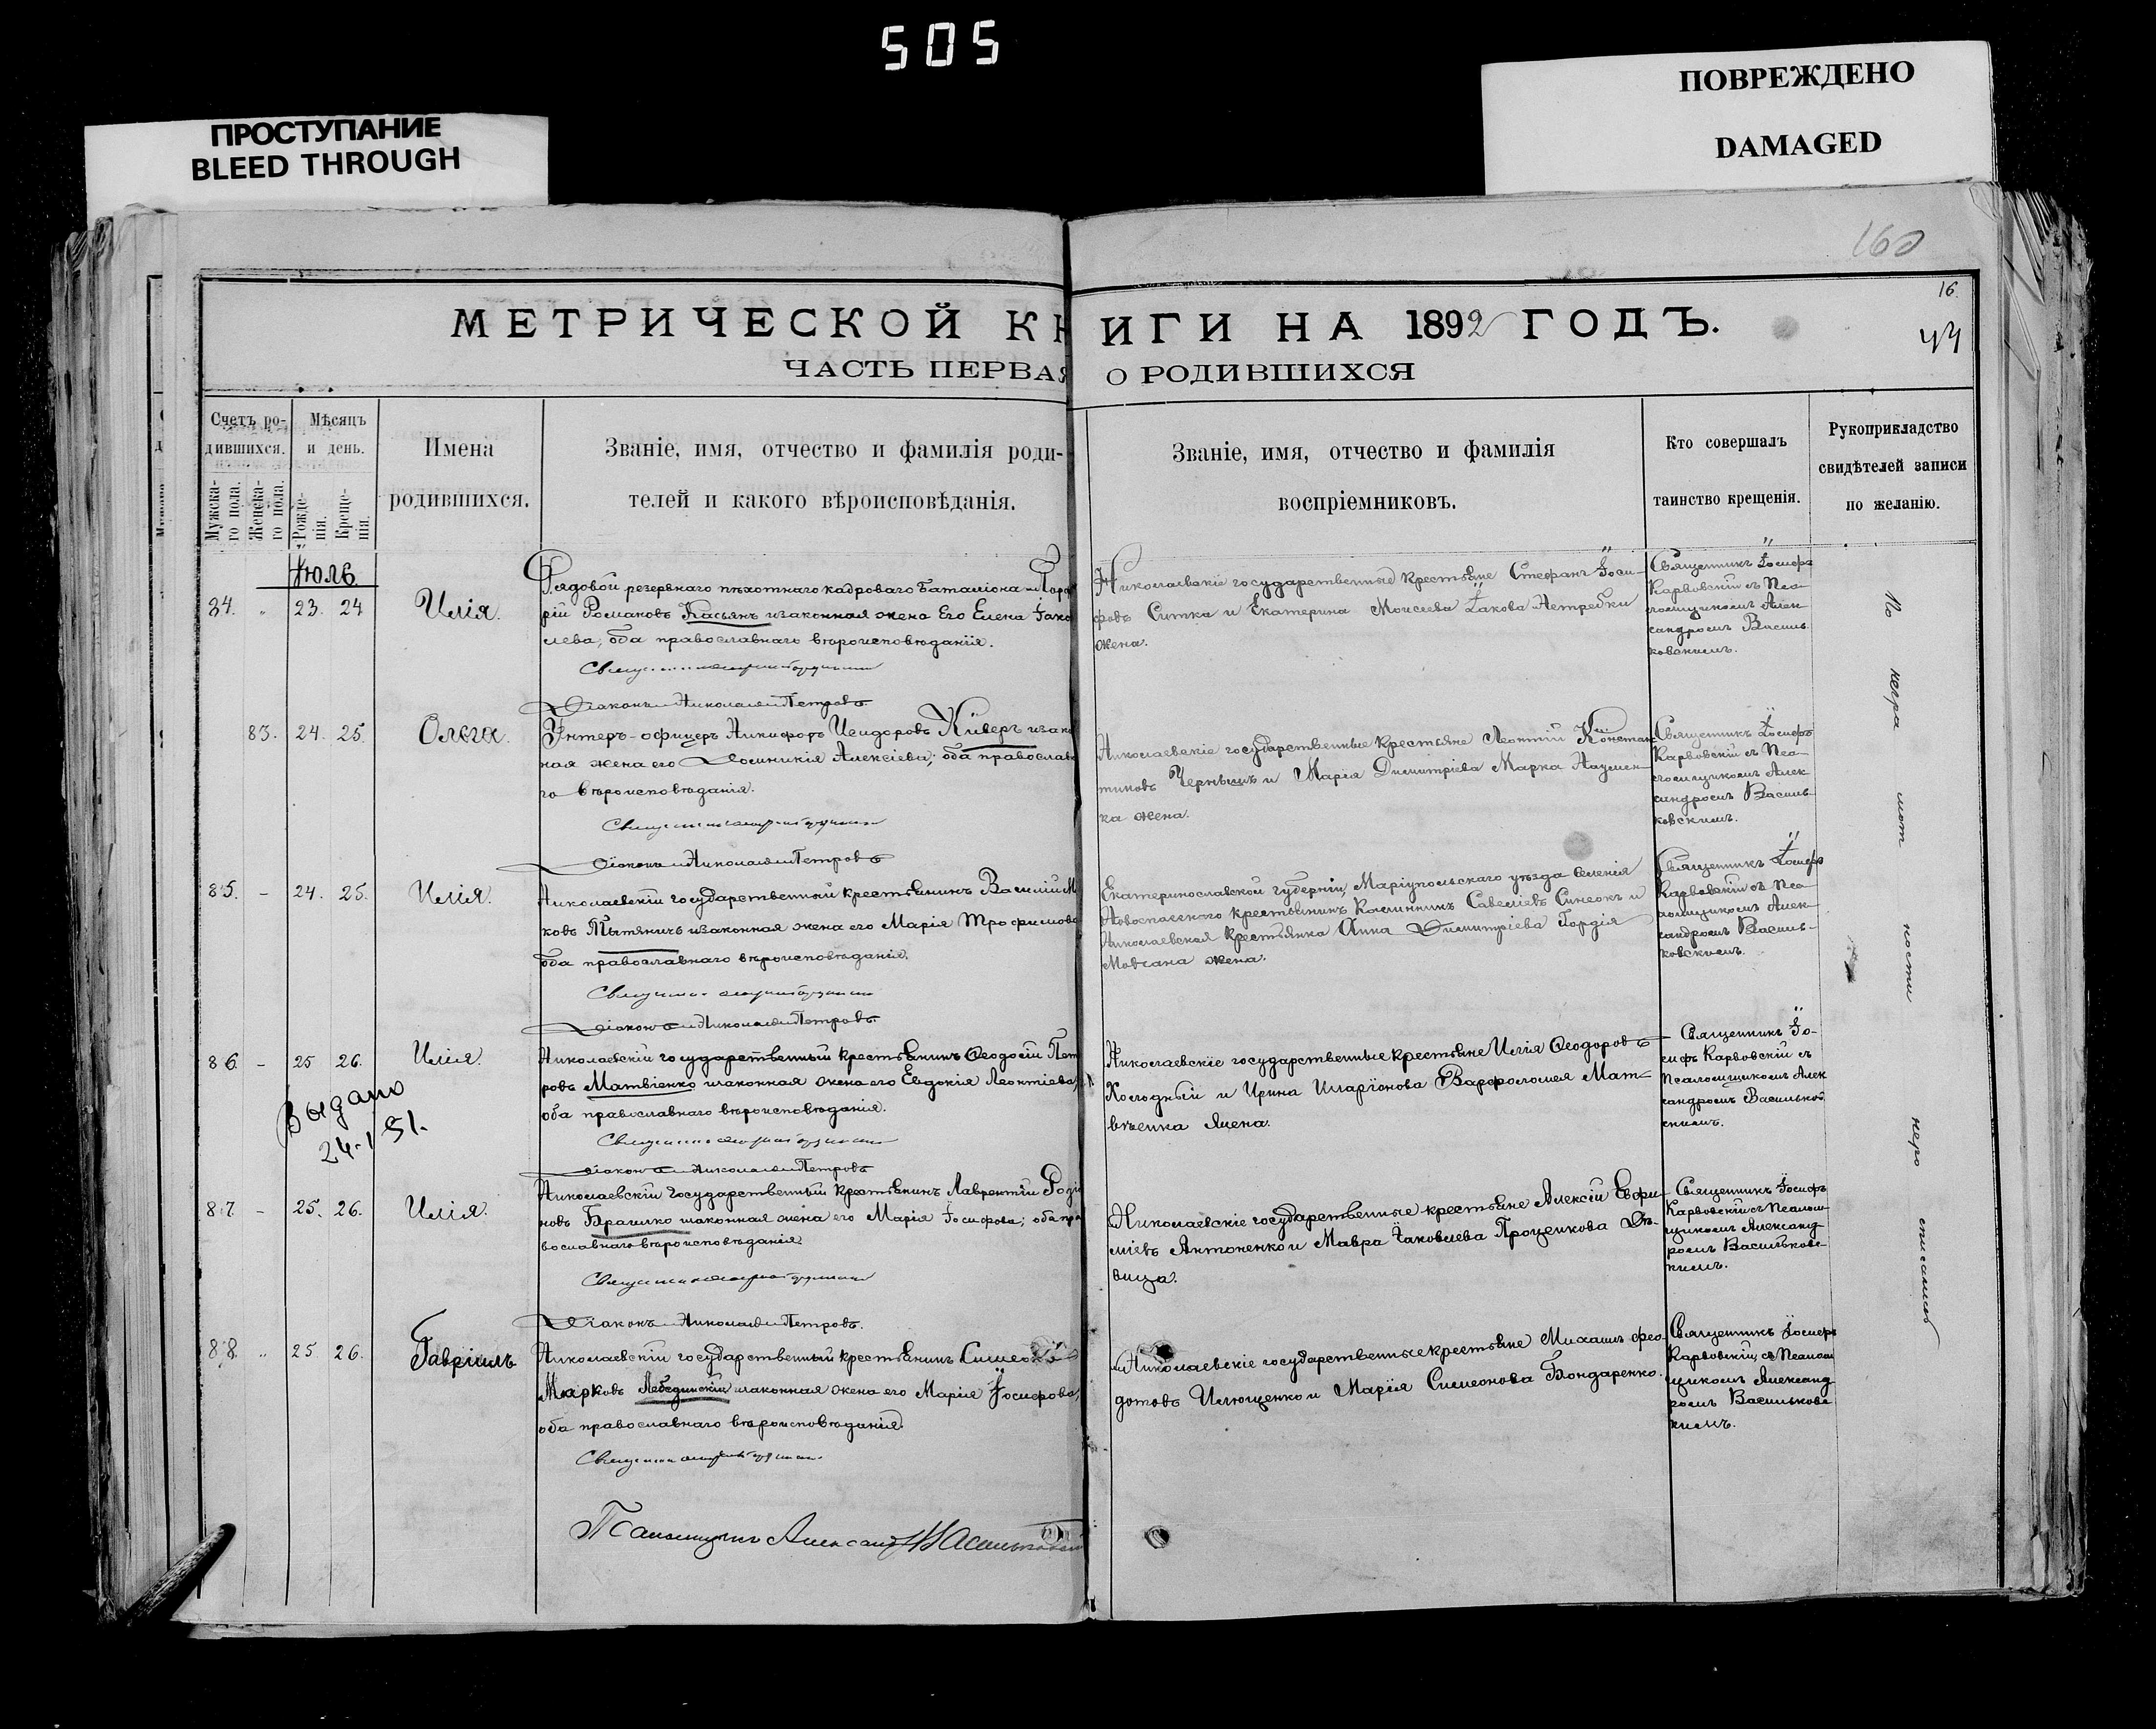 505
ПРОСТУПАНИЕ
BLEED THROUGH
ПОВРЕЖДЕНО
DAMAGED
160
16
44
МЕТРИЧЕСКОЙ КН
ИГИ НА 1892 ГОДЪ.
ЧАСТЬ ПЕРВАЯ
О РОДИВШИХСЯ
Счетъ ро-
дившихся.
Мужска-
го пола.
Женска-
го пола.
Мѣсяцъ
и день.
Рожде-
нія.
Креще-
нія.
Имена
родившихся.
Званіе, имя, отчество и фамилія роди-
телей и какого вѣроисповѣданія.
Званіе, имя, отчество и фамилія
воспріемниковъ.
Кто совершалъ
таинство крещенія.
Рукоприкладство
свидѣтелей записи
по желанію.
Іюль
84. " 23. 24 Илія.
Рядовой резервнаго пѣхотнаго кадроваго баталіона
рій Романовъ Касьянъ изаконная жена его Елена Іако
лева, оба православнаго вѣроисповѣданія.
Николаевскіе государственные крестьяне Стефанъ Іоси-
фовъ Ситка и Екатерина Моисеева Іакова Нетребки
жена.
Священникъ Іосифъ
Карвовскій съ Пса-
ломщикомъ Алек
сандромъ Василь
ковскимъ.
Діаконъ Николай Петровъ
83. 24. 25. Ольга.
Унтеръ-офицеръ Никифоръ Исидоровъ Киверъ изакон
ная жена его Домникія Алексіева; оба православна
го вѣроисповѣданія.
Николаевскіе государственные крестьяне Леонтій Констан
тиновъ Чернышъ и Марія Димитріева Марка
ка жена.
Священникъ Іосифъ
Карвовскій съ Пса-
ломщикомъ Алек
сандромъ Василь-
ковскимъ.
Діаконъ Николай Петровъ
85. - 24. 25. Илія.
Николаевскій государственный крестьянинъ Василій М
ковъ изаконная жена его Марія Трофимова
оба православнаго вѣроисповѣданія.
Екатеринославской губерніи, Маріупольскаго уѣзда селенія
Новоспасскаго крестьянинъ Савеліевъ Синеокъ и
Николаевская крестьянка Анна Димитріева Гордія
Мовчана жена.
Священникъ Іосифъ
Карвовскій съ Пса-
ломщикомъ Алек-
сандромъ Василь-
ковскимъ.
Діаконъ Николай Петровъ.
86 - 25 26. Илія.
Николаевскій государственный крестьянинъ Ѳеодосій Пет
ровъ Матвіенко изаконная жена его Евдокія Леонтіева,
оба православнаго вѣроисповѣданія.
Николаевскіе государственные крестьяне Илія Ѳеодоровъ
Холодный и Ирина Иларіонова Варфоломея Мат-
вѣенка жена.
Священникъ Іо-
сифъ Карвовскій съ
Псаломщикомъ Алек
сандромъ Васильков
скимъ.
Выдано
24-I 51.
Діаконъ Николай Петровъ
87 - 25. 26. Илія.
Николаевскій государственный крестьянинъ Лаврентій Родіо
новъ изаконная жена его Марія Іосифова; оба пра
вославнаго вѣроисповѣданія
Николаевскіе государственные крестьяне Алексій Евфи-
міевъ Антоненко и Мавра Іаковлева Проценкова Дѣ-
вица.
Священникъ Іосифъ
Карвовскій съ Псалом
щикомъ Александ
ромъ Васильковс-
кимъ.
Діаконъ Николай Петровъ.
88. " 25 26. Гавріилъ
Николаевскій государственный крестьянинъ Симеонъ
Марковъ Лебединскій изаконная жена его Марія Іосифова,
оба православнаго вѣроисповѣданія.
Николаевскіе государственные крестьяне Михаилъ Фео
дотовъ Илющенко и Марія Симеонова Бондаренко.
Священникъ Іосифъ
Карвовскій, съ Псалом
щикомъ Александ
ромъ Васильковс
кимъ.
Псаломщикъ Александръ Васильковскій